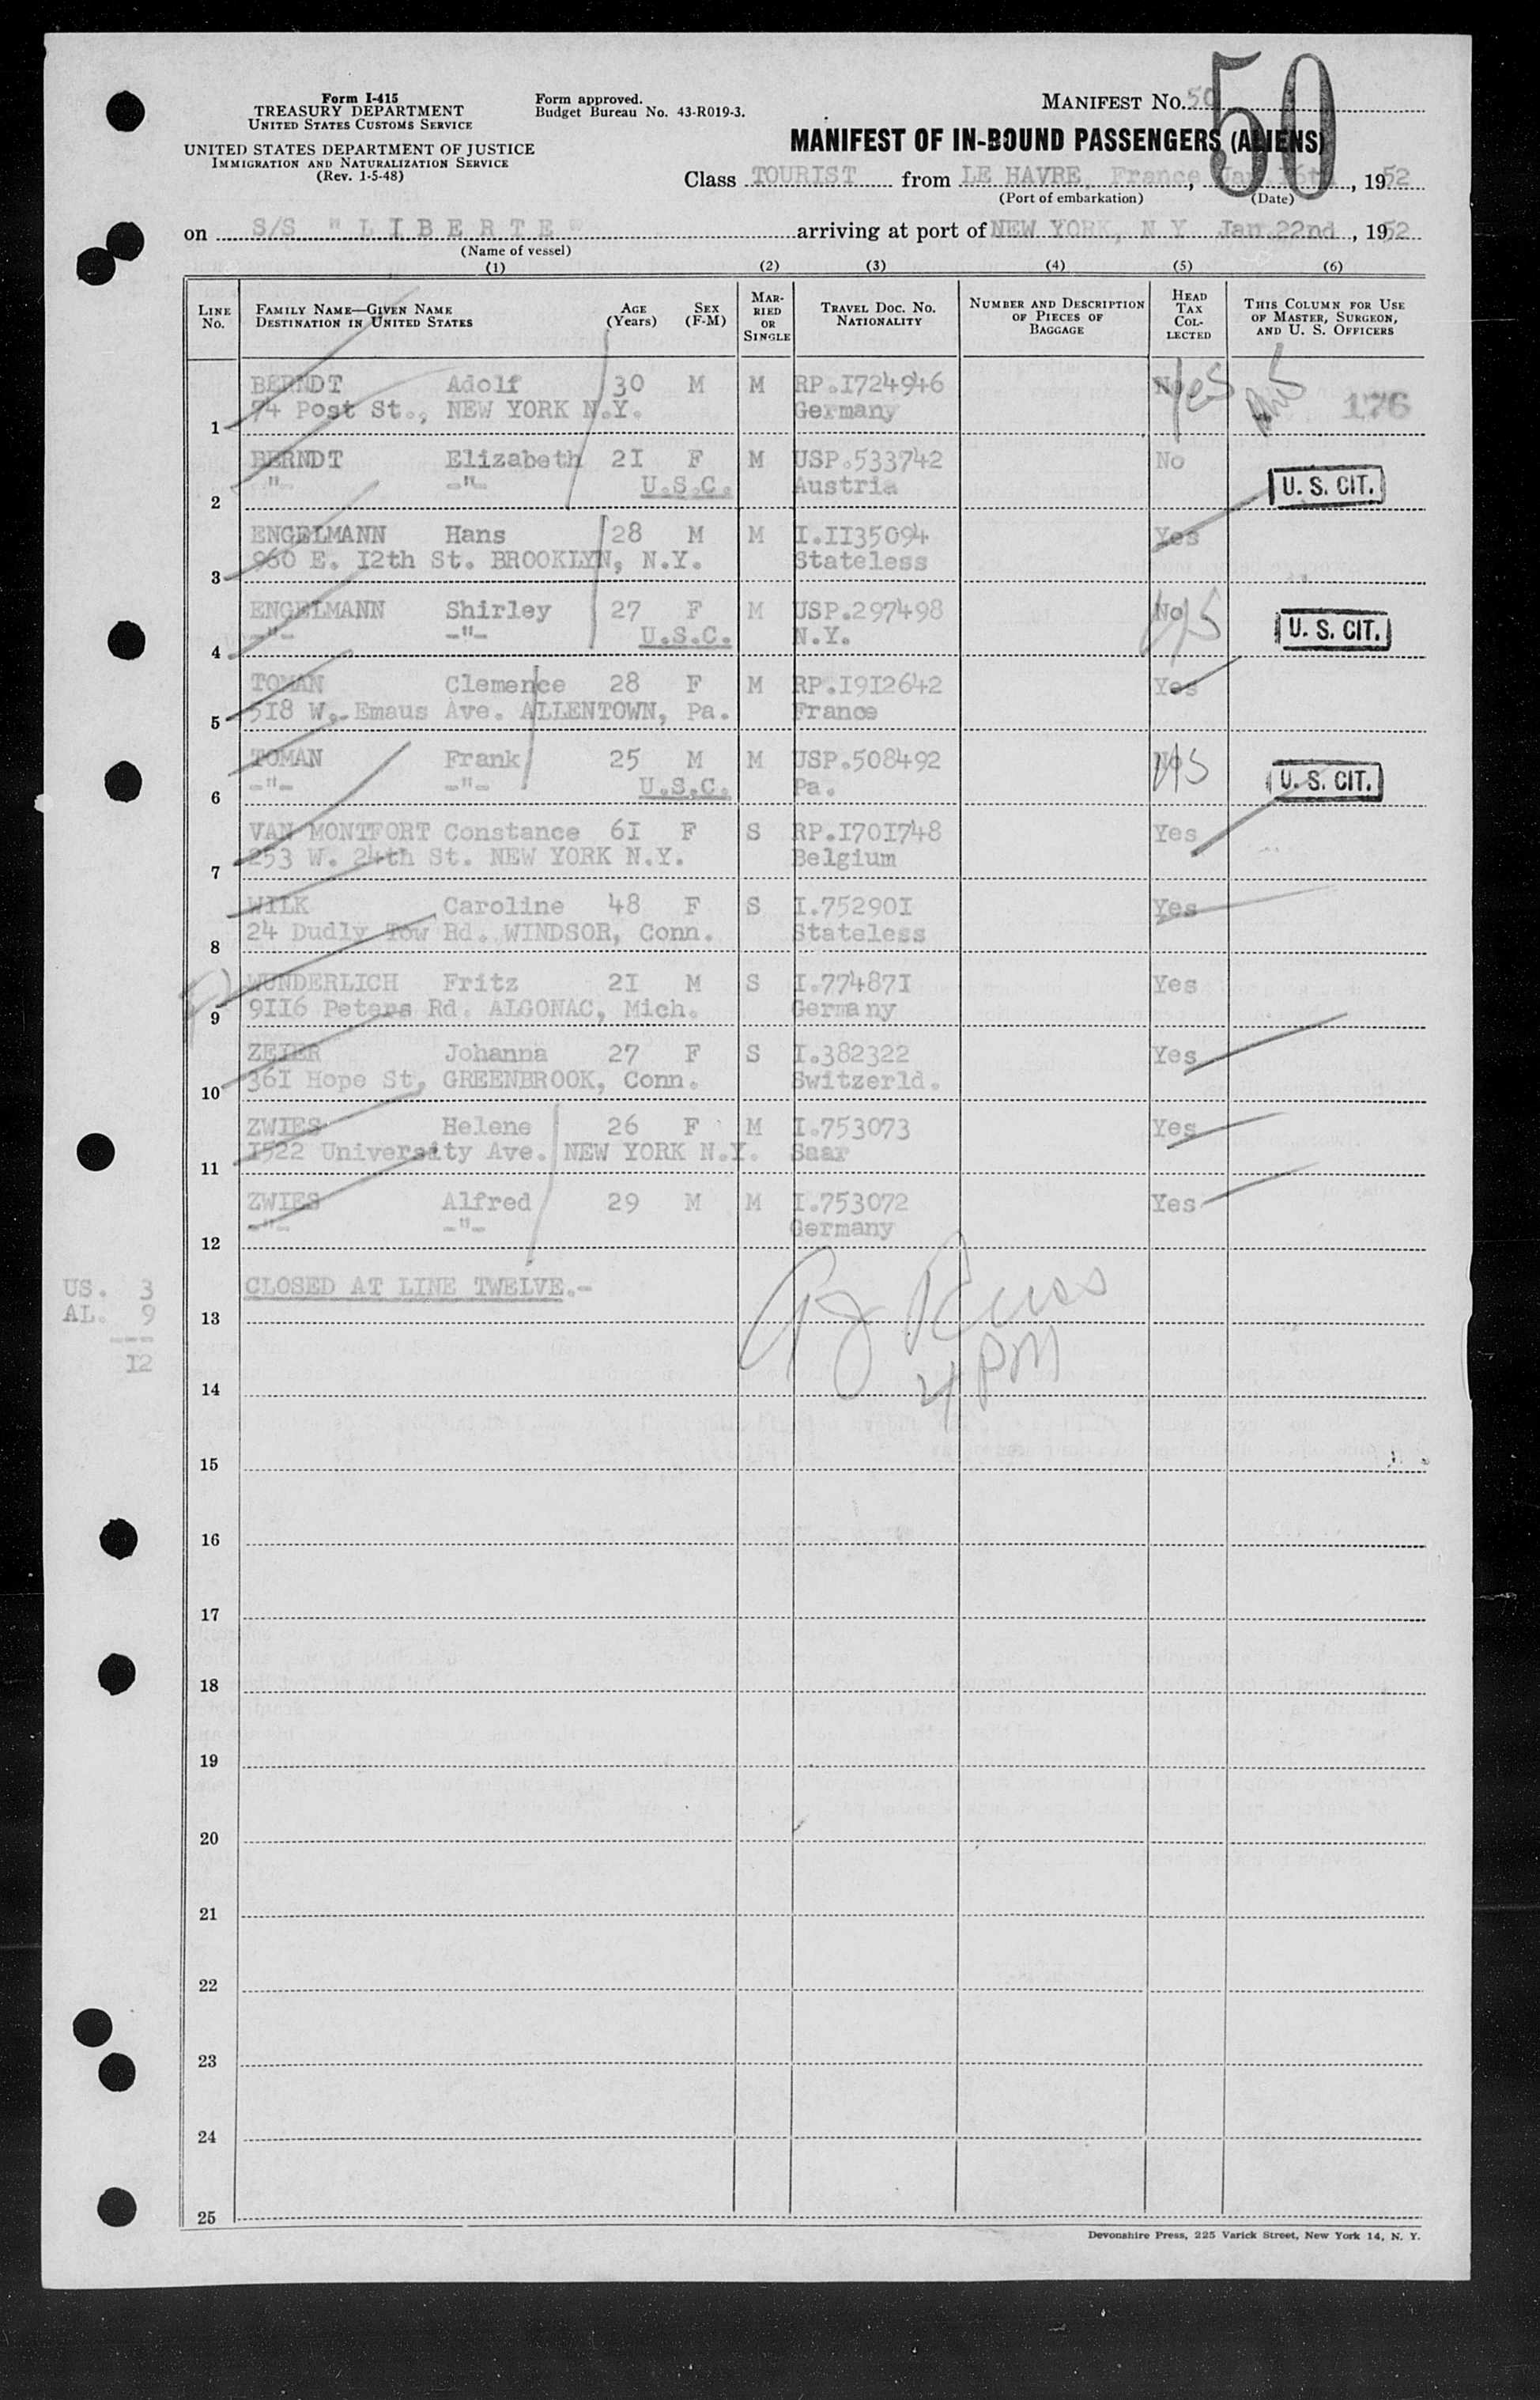 Form I-415
TREASURY DEPARTMENT
UNITED STATES CUSTOMS SERVICE
UNITED STATES DEPARTMENT OF JUSTICE
IMMIGRATION AND NATURALIZATION SERVICE
(Rev. 1-5-48)
Form approved.
Budget Bureau No. 43-R019-3.
MANIFEST NO. 50
50
MANIFEST OF IN-BOUND PASSENGERS (ALIENS)
Class TOURIST from LE HAVRE, France, Jan. 16th, 1952
(Port of embarkation) (Date)
on S/S "LIBERTE" arriving at port of NEW YORK, N.Y. Jan. 22nd, 1952
(Name of vessel)
(1) (2) (3) (4) (5) (6)
LINE NO. FAMILY NAME—GIVEN NAME DESTINATION IN UNITED STATES AGE (Years) SEX (F-M) MARRIED OR SINGLE TRAVEL DOC. NO. NATIONALITY NUMBER AND DESCRIPTION OF PIECES OF BAGGAGE HEAD TAX COLLECTED THIS COLUMN FOR USE OF MASTER, SURGEON, AND U. S. OFFICERS
BERNDT Adolf 30 M M RP.I724946 No Yes 176
1 74 Post St., NEW YORK N.Y. Germany
BERNDT Elizabeth 2I F M USP.533742 No
2 -"- -"- U.S.C. Austria U. S. CIT.
ENGELMANN Hans 28 M M I.II35094 Yes
3 960 E. I2th St. BROOKLYN, N.Y. Stateless
ENGELMANN Shirley 27 F M USP.297498 No
4 -"- -"- U.S.C. N.Y. U. S. CIT.
TOMAN Clemence 28 F M RP.I9I2642 Yes
5 5I8 W. Emaus Ave. ALLENTOWN, Pa. France
TOMAN Frank 25 M M USP.508492 No
6 -"- -"- U.S.C. Pa. U. S. CIT.
VAN MONTFORT Constance 6I F S RP.I70I748 Yes
7 253 W. 24th St. NEW YORK N.Y. Belgium
WILK Caroline 48 F S I.75290I Yes
8 24 Dudly Tow Rd. WINDSOR, Conn. Stateless
WUNDERLICH Fritz 2I M S I.77487I Yes
9 9II6 Peters Rd. ALGONAC, Mich. Germany
ZEIER Johanna 27 F S I.382322 Yes
10 36I Hope St, GREENBROOK, Conn. Switzerld.
ZWIES Helene 26 F M I.753073 Yes
11 I522 University Ave. NEW YORK N.Y. Saar
ZWIES Alfred 29 M M I.753072 Yes
12 -"- -"- Germany
US. 3
AL. 9
I2
CLOSED AT LINE TWELVE.-
13
4 PM
14
15
16
17
18
19
20
21
22
23
24
25
Devonshire Press, 225 Varick Street, New York 14, N. Y.